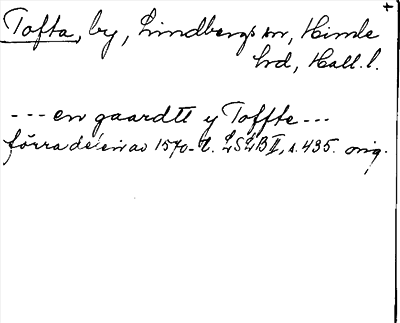 Tofta, by, Lindbergs sn, Himle
hd, Hall. l.
--- en gaardtt y Toffte ---
förra delen av 1570-t. LSLB II, s. 435. orig.